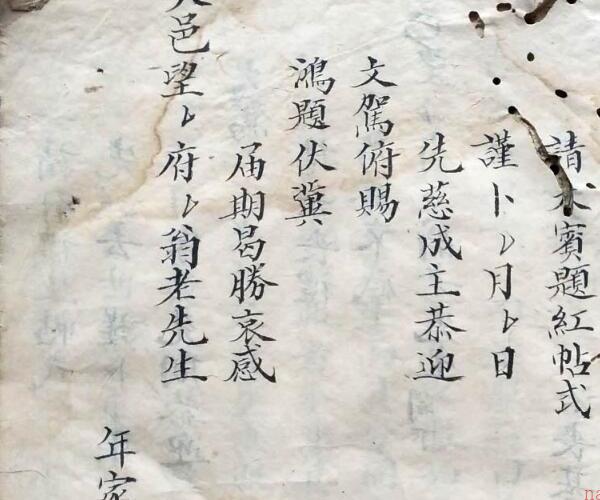 請賓題紅帖式
謹卜〻月〻日
先慈成主恭迎
文駕俯賜
鴻題伏冀
届期曷勝哀感
邑望〻府〻翁老先生
年家
na